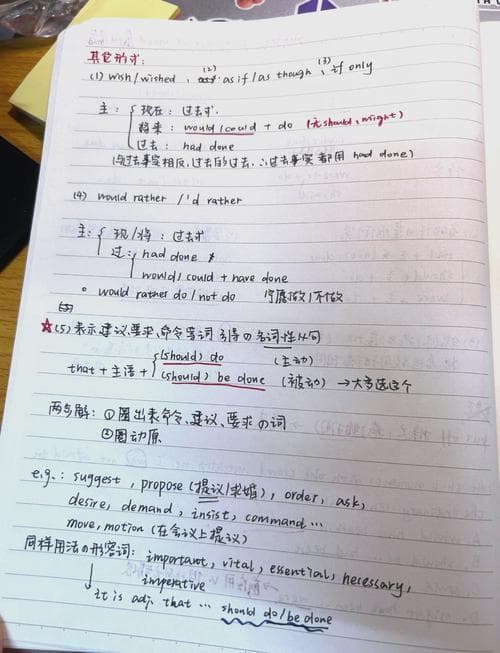 其它形式:
(1) wish/wished , (2) as if/as though , (3) if only
主: { 现在: 过去式.
将来: would/could + do (无should, might)
过去: had done
(与过去事实相反, 过去的过去, ∴过去事实都用 had done)
(4) would rather /'d rather
主: { 现/将: 过去式
过: { had done
would/could + have done
would rather do/not do 宁愿做/不做
☆(5) 表示建议、要求、命令等词引导の名词性从句
that + 主语 + { (should) do (主动)
(should) be done (被动) → 大多选这个
两步解: ① 圈出表命令、建议、要求の词
② 圈动原
e.g.: suggest , propose (提议/求婚) , order , ask,
desire, demand, insist, command ...
move, motion (在会议上提议)
同样用法の形容词: important, vital, essential, necessary,
imperative
↓ it is adj. that ... should do/be done